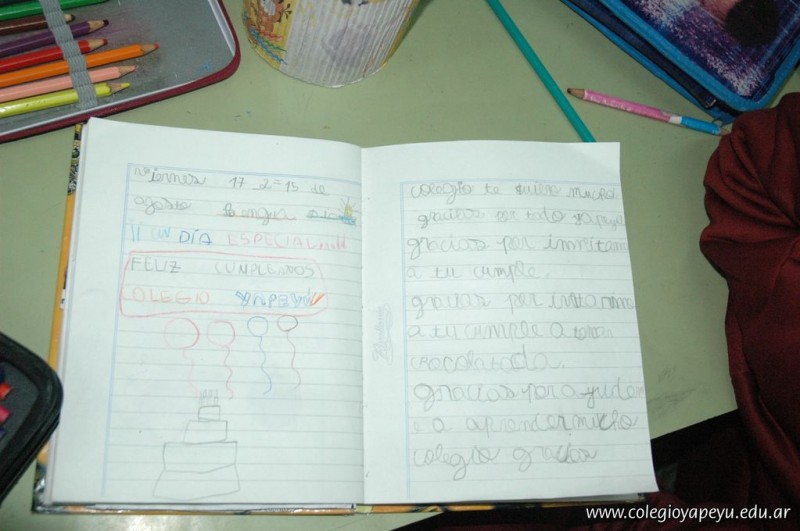 viernes 17-2=15 de
agosto Lengua
¡¡UN DÍA ESPECIAL!!!!
FELIZ CUMPLEAÑOS
COLEGIO YAPEYÚ
colegio te quiero mucho
gracias por todo yapeyú
gracias por invitarme
a tu cumple.
gracias por invitarme
a tu cumple a tomar
chocolatada.
gracias por ayudar
e a aprender mucho
colegio gracias
www.colegioyapeyu.edu.ar